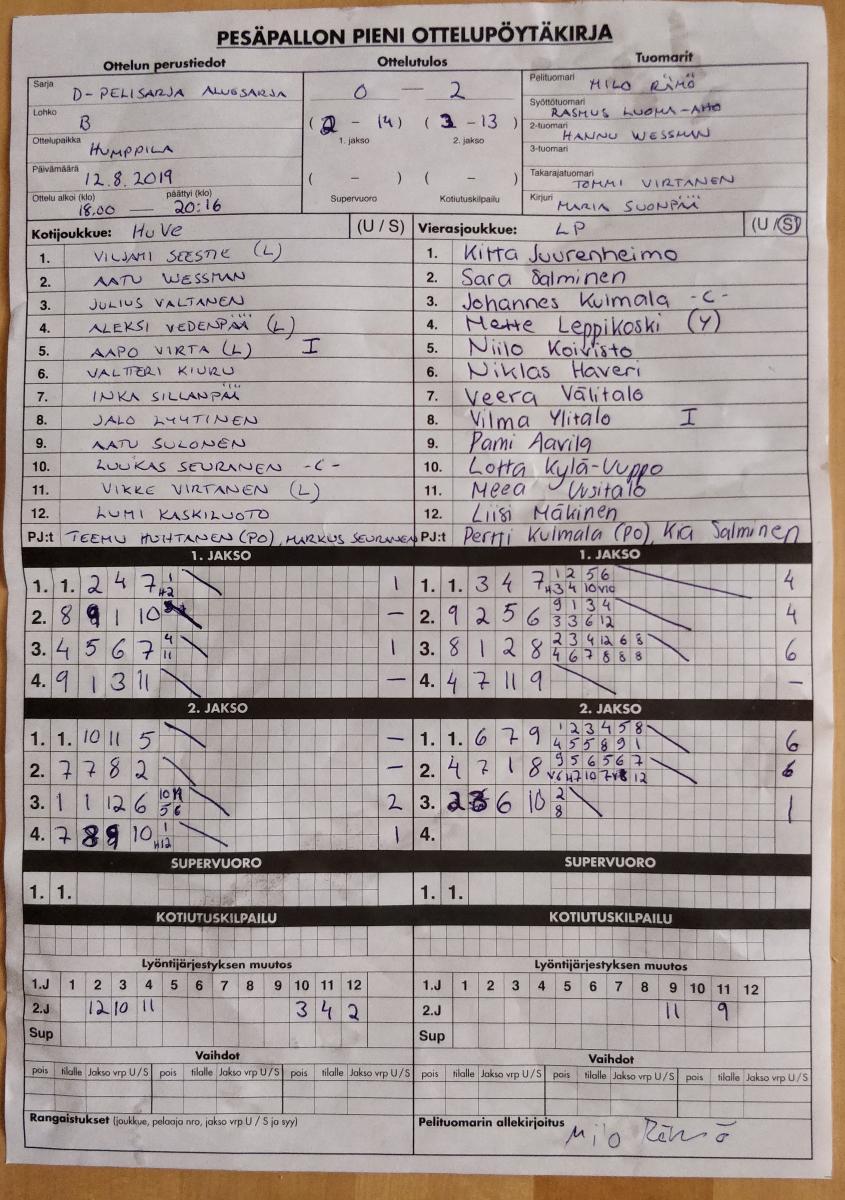 PESÄPALLON PIENI OTTELUPÖYTÄKIRJA
Ottelun perustiedot
Sarja D-PELISARJA ALUESARJA
Lohko B
Ottelupaikka HUMPPILA
Päivämäärä 12.8.2019
Ottelu alkoi (klo) päättyi (klo)
18.00 — 20:16
Ottelutulos
0 — 2
(2 - 14) (3 - 13)
1. jakso 2. jakso
( - ) ( - )
Supervuoro Kotiutuskilpailu
Tuomarit
Pelituomari MILO RÄMÖ
Syöttötuomari RASMUS LUOMA-AHO
2-tuomari HANNU WESSMAN
3-tuomari
Takarajatuomari TOMMI VIRTANEN
Kirjuri MARIA SUONPÄÄ
Kotijoukkue: HuVe (U / S)
1. VILJAMI SEESTIE (L)
2. AATU WESSMAN
3. JULIUS VALTANEN
4. ALEKSI VEDENPÄÄ (L)
5. AAPO VIRTA (L) I
6. VALTTERI KIURU
7. INKA SILLANPÄÄ
8. JALO LYYTINEN
9. AATU SULONEN
10. LUUKAS SEURANEN -C-
11. VIKKE VIRTANEN (L)
12. LUMI KASKILUOTO
PJ:t TEEMU HUHTANEN (PO), MARKUS SEURANEN
Vierasjoukkue: LP (U / S)
1. Kitta Juurenheimo
2. Sara Salminen
3. Johannes Kulmala -C-
4. Mette Leppikoski (Y)
5. Niilo Koivisto
6. Niklas Haveri
7. Veera Välitalo
8. Vilma Ylitalo I
9. Pami Aavila
10. Lotta Kylä-Uuppo
11. Meea Uusitalo
12. Liisi Mäkinen
PJ:t Pertti Kulmala (PO), Kia Salminen
1. JAKSO
1. 1. 2 4 7 1 H2 1
2. 8 9 1 10 –
3. 4 5 6 7 4 11 1
4. 9 1 3 11 –
1. JAKSO
1. 1. 3 4 7 1 2 5 6 H3 4 10 V10 4
2. 9 2 5 6 9 1 3 4 3 3 6 12 4
3. 8 1 2 8 2 3 4 12 6 8 4 6 7 8 8 8 6
4. 4 7 11 9 –
2. JAKSO
1. 1. 10 11 5 –
2. 7 7 8 2 –
3. 1 1 12 6 10 11 5 6 2
4. 7 8 9 10 1 H12 1
2. JAKSO
1. 1. 6 7 9 1 2 3 4 5 8 4 5 5 8 9 1 6
2. 4 7 1 8 9 5 6 5 6 7 V6 H7 10 7 12 6
3. 6 10 2 8 1
4.
SUPERVUORO
1. 1.
SUPERVUORO
1. 1.
KOTIUTUSKILPAILU
KOTIUTUSKILPAILU
Lyöntijärjestyksen muutos
1.J 1 2 3 4 5 6 7 8 9 10 11 12
2.J 12 10 11 3 4 2
Sup
Lyöntijärjestyksen muutos
1.J 1 2 3 4 5 6 7 8 9 10 11 12
2.J 11 9
Sup
Vaihdot
pois tilalle Jakso vrp U / S pois tilalle Jakso vrp U / S pois tilalle Jakso vrp U / S
Vaihdot
pois tilalle Jakso vrp U / S pois tilalle Jakso vrp U / S pois tilalle Jakso vrp U / S
Rangaistukset (joukkue, pelaaja nro, jakso vrp U / S ja syy)
Pelituomarin allekirjoitus Milo Rämö